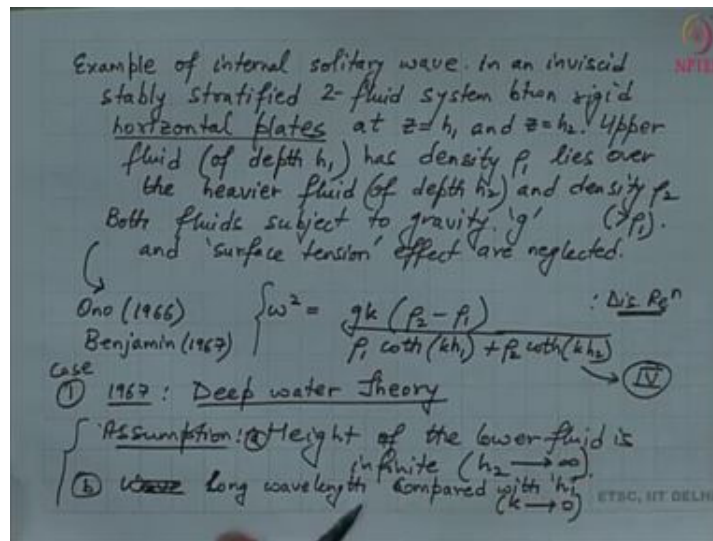 Example of internal solitary wave. In an inviscid
NPTEL
stably stratified 2-fluid system btwn rigid
horizontal plates at z=h₁ and z=h₂. Upper
fluid (of depth h₁) has density ρ₁ lies over
the heavier fluid (of depth h₂) and density ρ₂
Both fluids subject to gravity 'g' (>ρ₁).
and 'surface tension' effect are neglected.
Ono (1966) { ω² = gk (ρ₂ - ρ₁) / ρ₁ coth(kh₁) + ρ₂ coth(kh₂) : Dis. Relⁿ
Benjamin (1967)
→ IV
Case
① 1967 : Deep water Theory
Assumption: ⓐ Height of the lower fluid is
infinite (h₂ → ∞).
ⓑ Long wavelength compared with 'h₁'
(k → 0)
ETSC, IIT DELHI